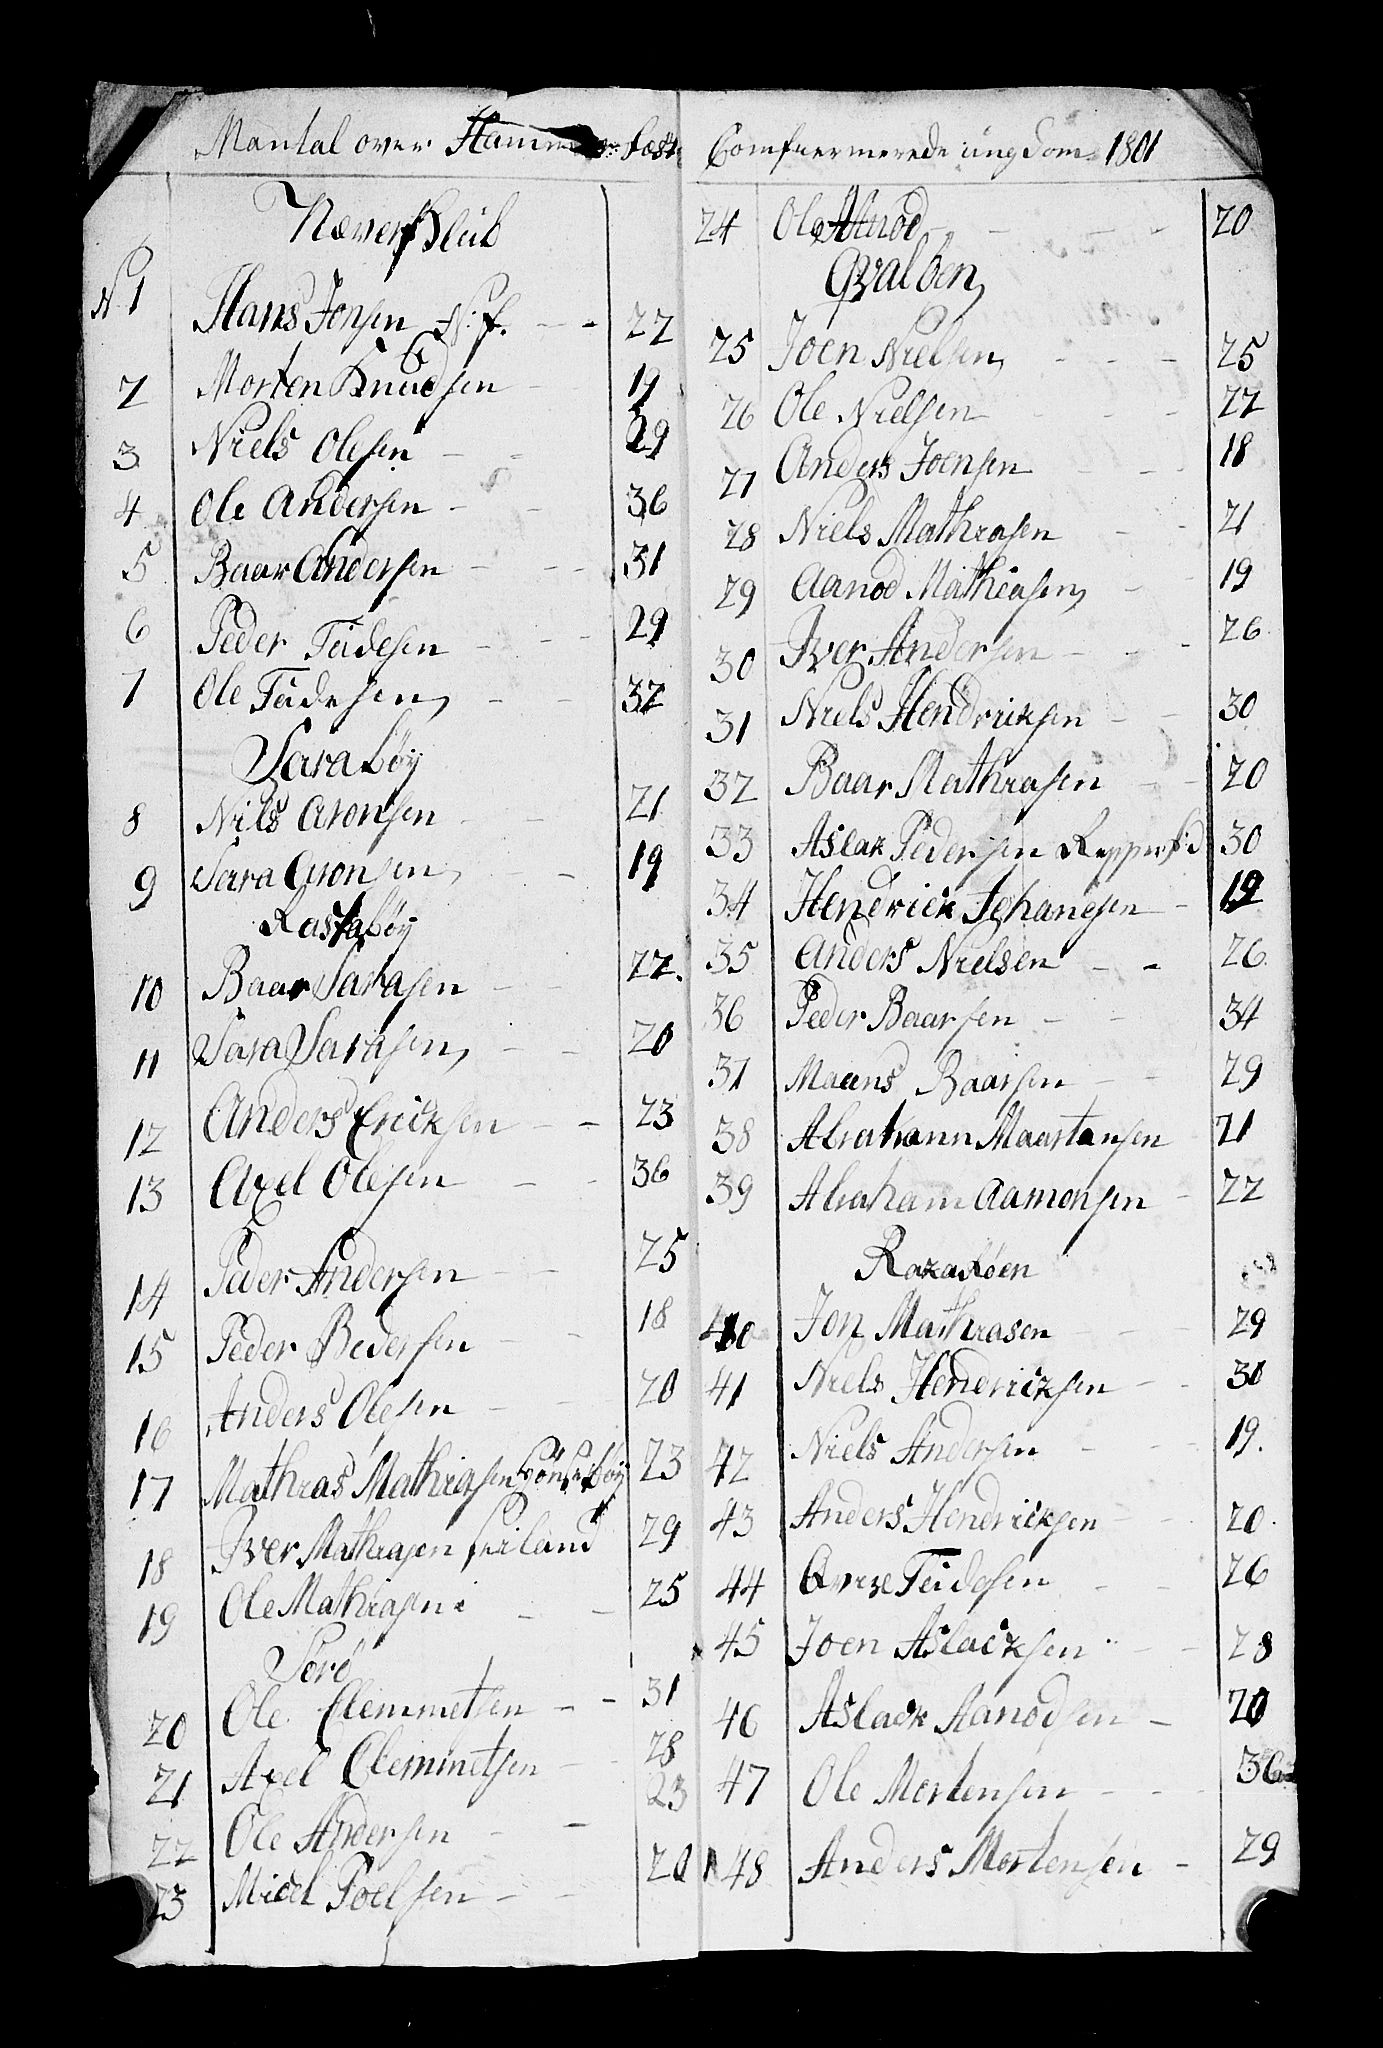 Mantal over Hammerfæst Comfuermerede ungdom 1801
NæverfKlub
N 1 Hans Jonsen N: f. 22
2 Morten Knudsen 19
3 Niels Olesen 29
4 Ole Andersen 36
5 Baar Andersen 31
6 Peder Tudesen 29
7 Ole Tudesen 32
Saraböÿ
8 Nils Aronsen 21
9 Sara Aronsen 19
Rastaböÿ
10 Baar Sarasen 22.
11 Sara Sarasen 20
12 Anders Ericksen 23
13 Axel Olesen 36
14 Peder Andersen 25
15 Peder Bedersen 18
16 Anders Olesen 20
17 Mathias Mathiasen 23
18 Iver Mathiasen Seiland 29
19 Ole Mathiasen 25
Sörö
20 Ole Clemmetsen 31
21 Axel Clemmetsen 28
22 Ole Andersen 23
23 Mickel Poelsen 20
24 Ole Alnod 20
Qvalöen
25 Joen Nielsen 25
26 Ole Nielsen 22
27 Anders Joensen 18
28 Niels Mathiasen 21
29 Aanod Mathiasen 19
30 Iver Andersen 26
31 Niels Hendricksen 30
32 Baar Mathiasen 20
33 Aslak Pedersen Repperf:d 30
34 Hendrick Johanesen 19
35 Anders Nielsen 26
36 Peder Baarsen 34
37 Maans Baarsen 29
38 Abraham Maartensen 21
39 Abraham Aamonsen 22
Rakalöen
40 Jon Mathiasen 29
41 Niels Hendricksen 30
42 Niels Andersen 19.
43 Anders Hendricksen 20.
44 Qvive Tudesen 26
45 Joen Aslacksen 28
46 Aslack Aanodsen 20
47 Ole Mortensen 36
48 Anders Mortensen 29